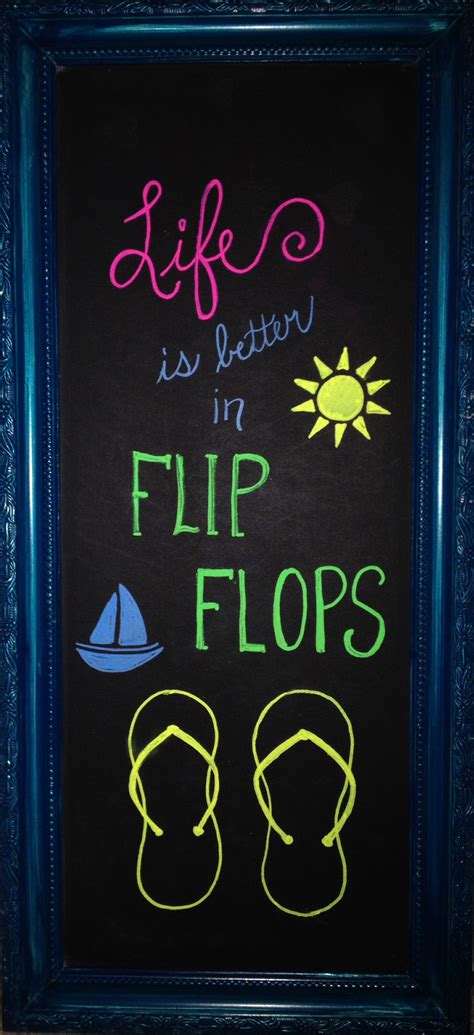 Life
is better
in
FLIP
FLOPS